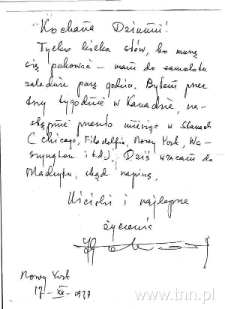 "Kochana Dziunii!
Tylko kilka słów, bo muszę
się pakować – mam do samolotu
zaledwie parę godzin. Byłem przez
trzy tygodnie w Kanadzie, na-
stępnie prawie miesiąc w Stanach
(Chicago, Filadelfia, Nowy York, Wa-
szyngton itd.). Dziś wracam do
Madrytu, skąd napiszę,
Uściski i najlepsze
życzenia
Nowy York
17-XII-1977
© www.tnn.pl